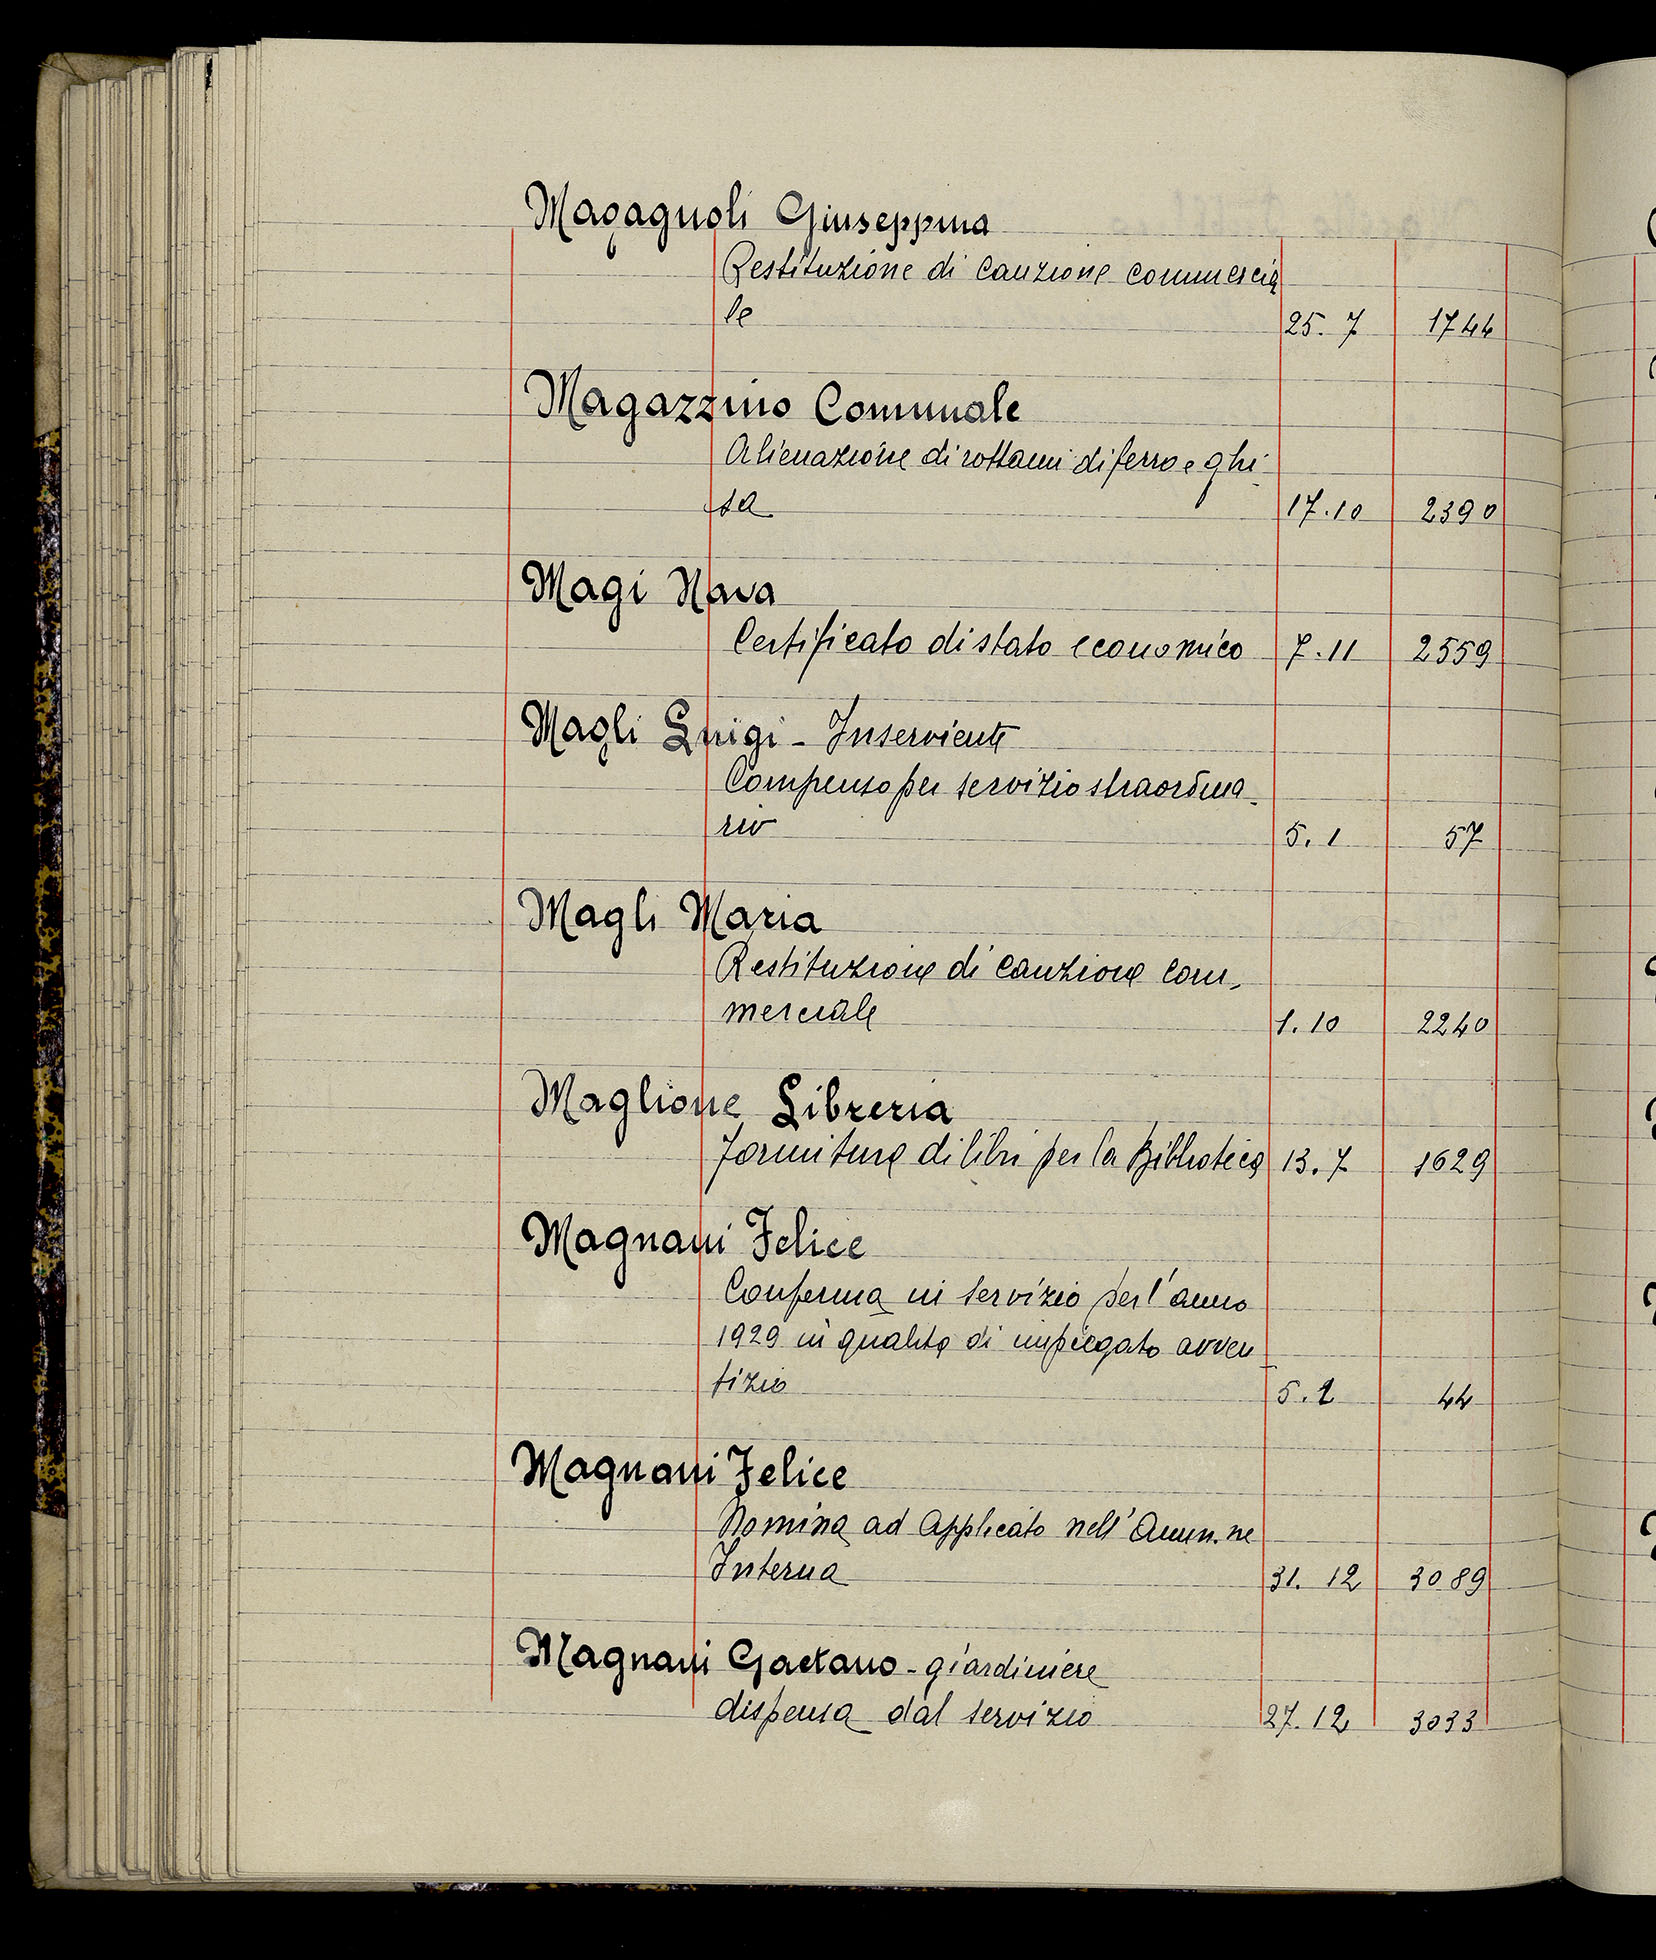 Magagnoli Giuseppina
Restituzione di cauzione commercia
le 25. 7 1744
Magazzino Comunale
Alienazione di rottami di ferro e ghi-
sa 17.10 2390
Magi Nava
Certificato di stato economico 7.11 2559
Magli Luigi - Inserviente
Compenso per servizio straordina-
rio 5. 1 57
Magli Maria
Restituzione di cauzione com-
merciale 1. 10 2240
Maglione Libreria
Fornitura di libri per la Biblioteca 13. 7 1629
Magnani Felice
Conferma in servizio per l'anno
1929 in qualità di impiegato avven-
tizio 5. 44
Magnani Felice
Nomina ad Applicato nell'Amm.ne
Interna 31. 12 3089
Magnani Gaetano - giardiniere
dispensa dal servizio 27. 12 3033